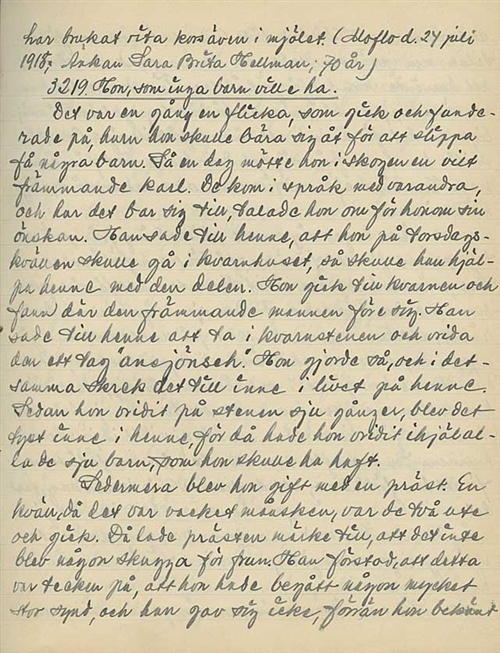 har brukat rita korsäven i mjölet. (Moflo d. 27 juli
1918; Änkan Sara Brita Hellman, 70 år)
3219. Hon, som inga barn ville ha.
Det var en gång en flicka, som gick och funde-
rade på, huru hon skulle bära sig åt för att slippa
få några barn. Så en dag mötte hon i skogen en vilt
främmande karl. De kom i språk med varandra,
och hur det bar sig till, talade hon om för honom sin
önskan. Han sade till henne, att hon på torsdags-
kvällen skulle gå i kvarnhuset, så skulle han hjäl-
pa henne med den delen. Hon gick till kvarnen och
fann där den främmande mannen före sig. Han
sade till henne att ta i kvarnstenen och vrida
den ett tag "ansjönsch". Hon gjorde så, och i det-
samma skrek det till inne i livet på henne.
Sedan hon vridit på stenen sju gånger, blev det
tyst inne i henne, för då hade hon vridit ihjäl al-
la de sju barn, som hon skulle ha haft.
Sedermera blev hon gift med en präst. En
kväll, då det var vackert månsken, var de två ute
och gick. Då lade prästen märke till, att det inte
blev någon skugga för frun. Han förstod, att detta
var tecken på, att hon hade begått någon mycket
stor synd, och han gav sig icke, förrän hon bekänt